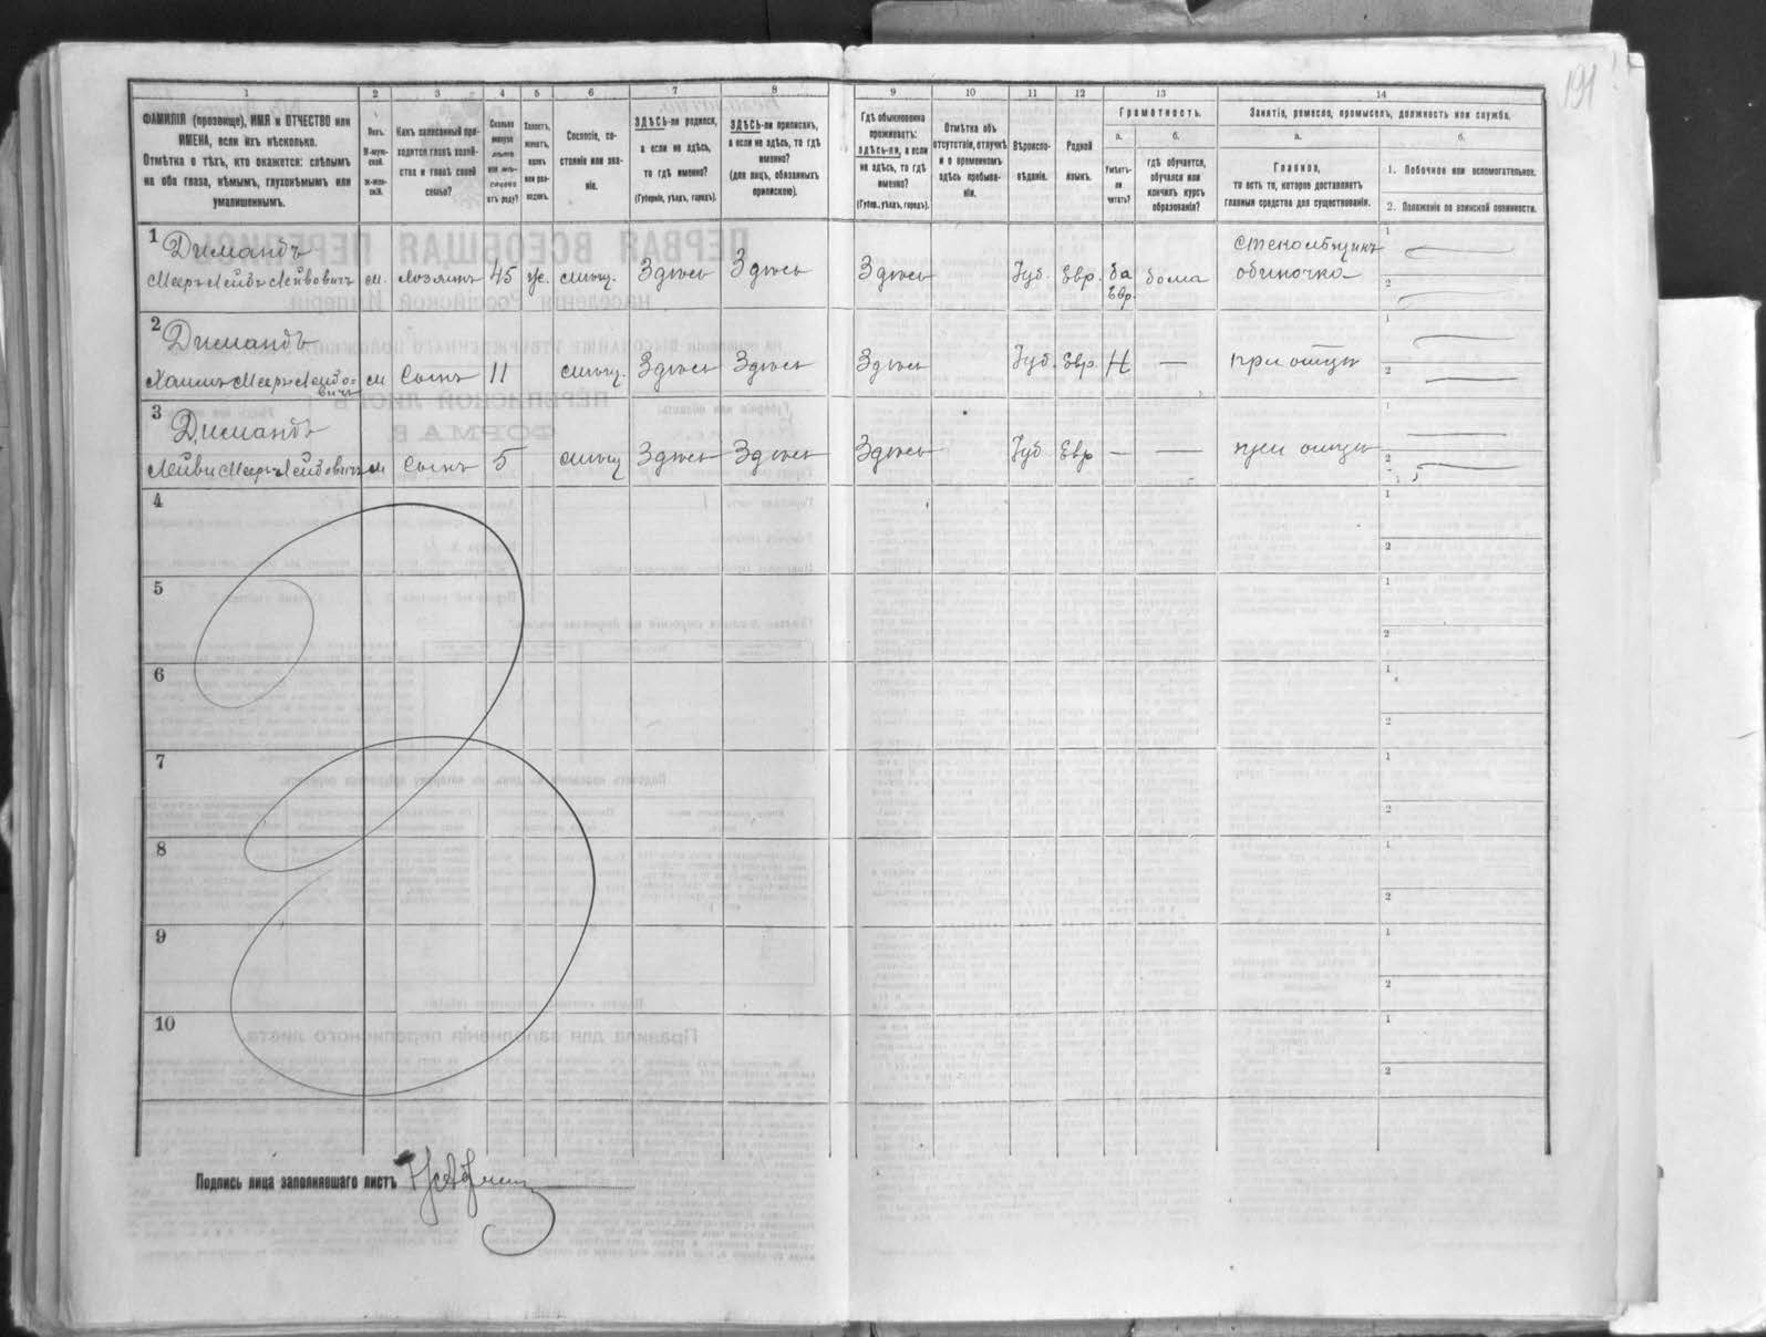 191
1 2 3 4 5 6 7 8 9 10 11 12 13 14
ФАМИЛІЯ (прозвище), ИМЯ и ОТЧЕСТВО или
ИМЕНА, если ихъ нѣсколько.
Отмѣтка о тѣхъ, кто окажется: слѣпымъ
на оба глаза, нѣмымъ, глухонѣмымъ или
умалишеннымъ.
Полъ.
М-муж-
ской.
Ж-жен-
скій.
Какъ записанный при-
ходится главѣ хозяй-
ства и главѣ своей
семьи?
Сколько
минуло
лѣтъ
или мѣ-
сяцевъ
отъ роду?
Холостъ,
женатъ,
вдовъ
или раз-
веденъ.
Сословіе, со-
стояніе или зва-
ніе.
ЗДѢСЬ-ли родился,
а если не здѣсь,
то гдѣ именно?
(Губернія, уѣздъ, городъ).
ЗДѢСЬ-ли приписанъ,
а если не здѣсь, то гдѣ
именно?
(для лицъ, обязанныхъ
припискою).
Гдѣ обыкновенно
проживаетъ:
здѣсь-ли, а если
не здѣсь, то гдѣ
именно?
(Губер., уѣздъ, городъ).
Отмѣтка объ
отсутствіи, отлучкѣ
и о временномъ
здѣсь пребыва-
ніи.
Вѣроиспо-
вѣданіе.
Родной
языкъ.
Грамотность.
а.
Умѣетъ-
ли
читать?
б.
гдѣ обучается,
обучался или
кончилъ курсъ
образованія?
Занятіе, ремесло, промыселъ, должность или служба.
а.
Главное,
то есть то, которое доставляетъ
главныя средства для существованія.
б.
1. Побочное или вспомогательное.
2. Положеніе по воинской повинности.
1 Димандъ
Мееръ-Лейбъ Лейбовичъ м. хозяинъ 45 же. мѣщ. Здѣсь Здѣсь Здѣсь Іуд. Евр. да Евр. дома
одиночка
2 Димандъ
Хаимъ Мееръ-Лейбо=
вичъ м Сынъ 11 мѣщ. Здѣсь Здѣсь Здѣсь Іуд. Евр. Н — при отцѣ
3 Димандъ
Лейви Мееръ-Лейбовичъ м Сынъ 5 мѣщ Здѣсь Здѣсь Здѣсь Іуд Евр — — при отцѣ
4
5
6
7
8
9
10
Подпись лица заполнявшаго листъ